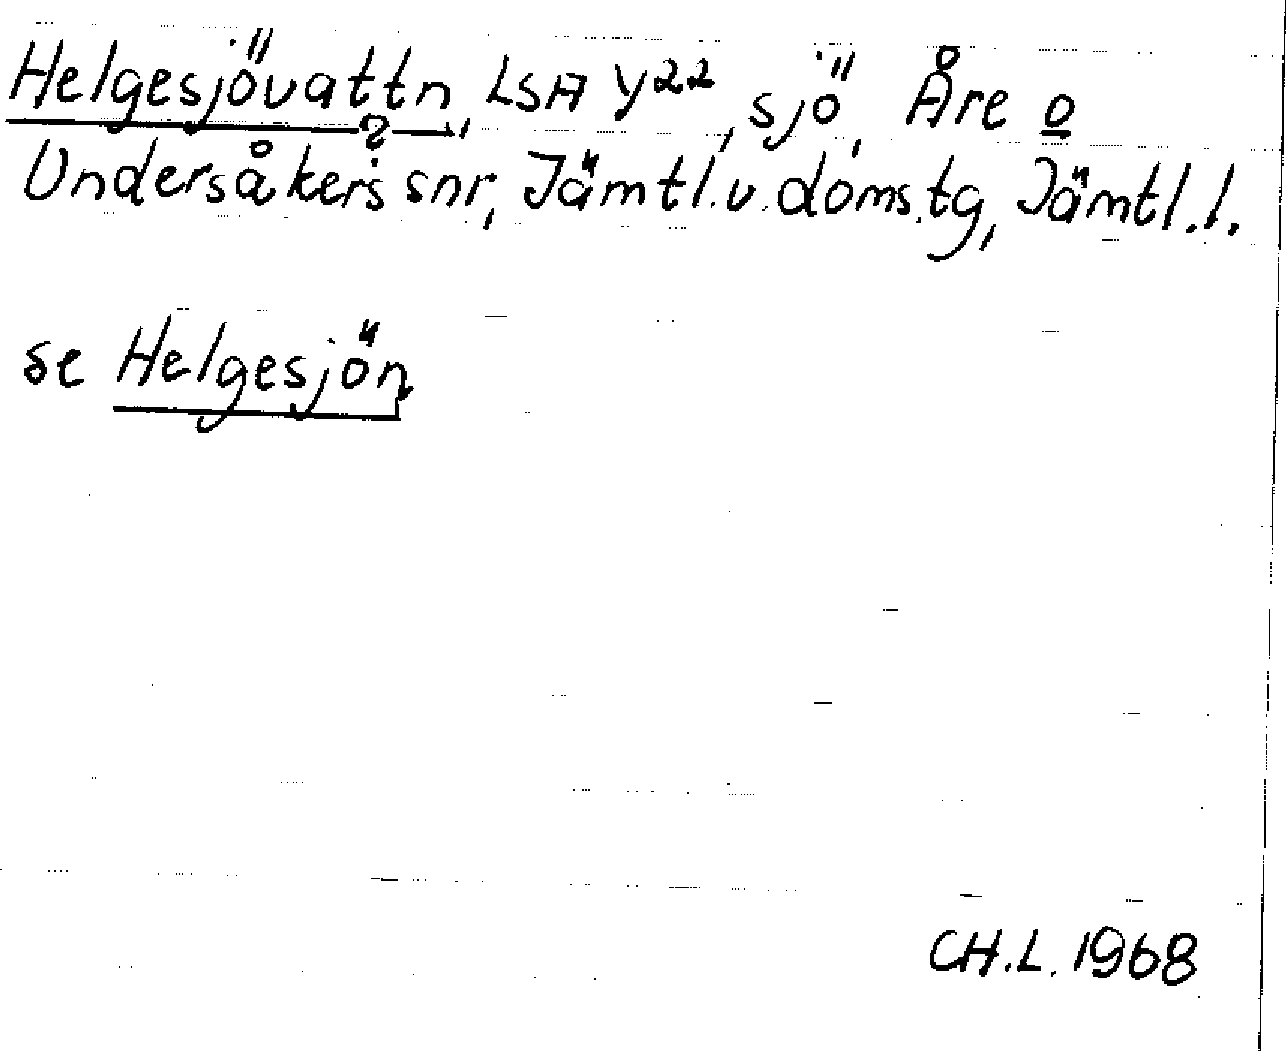 Helgesjövattn, LSA Y22, sjö, Åre o
Undersåkers snr, Jämtl.v.doms.tg, Jämtl.l.
se Helgesjön
CH.L. 1968